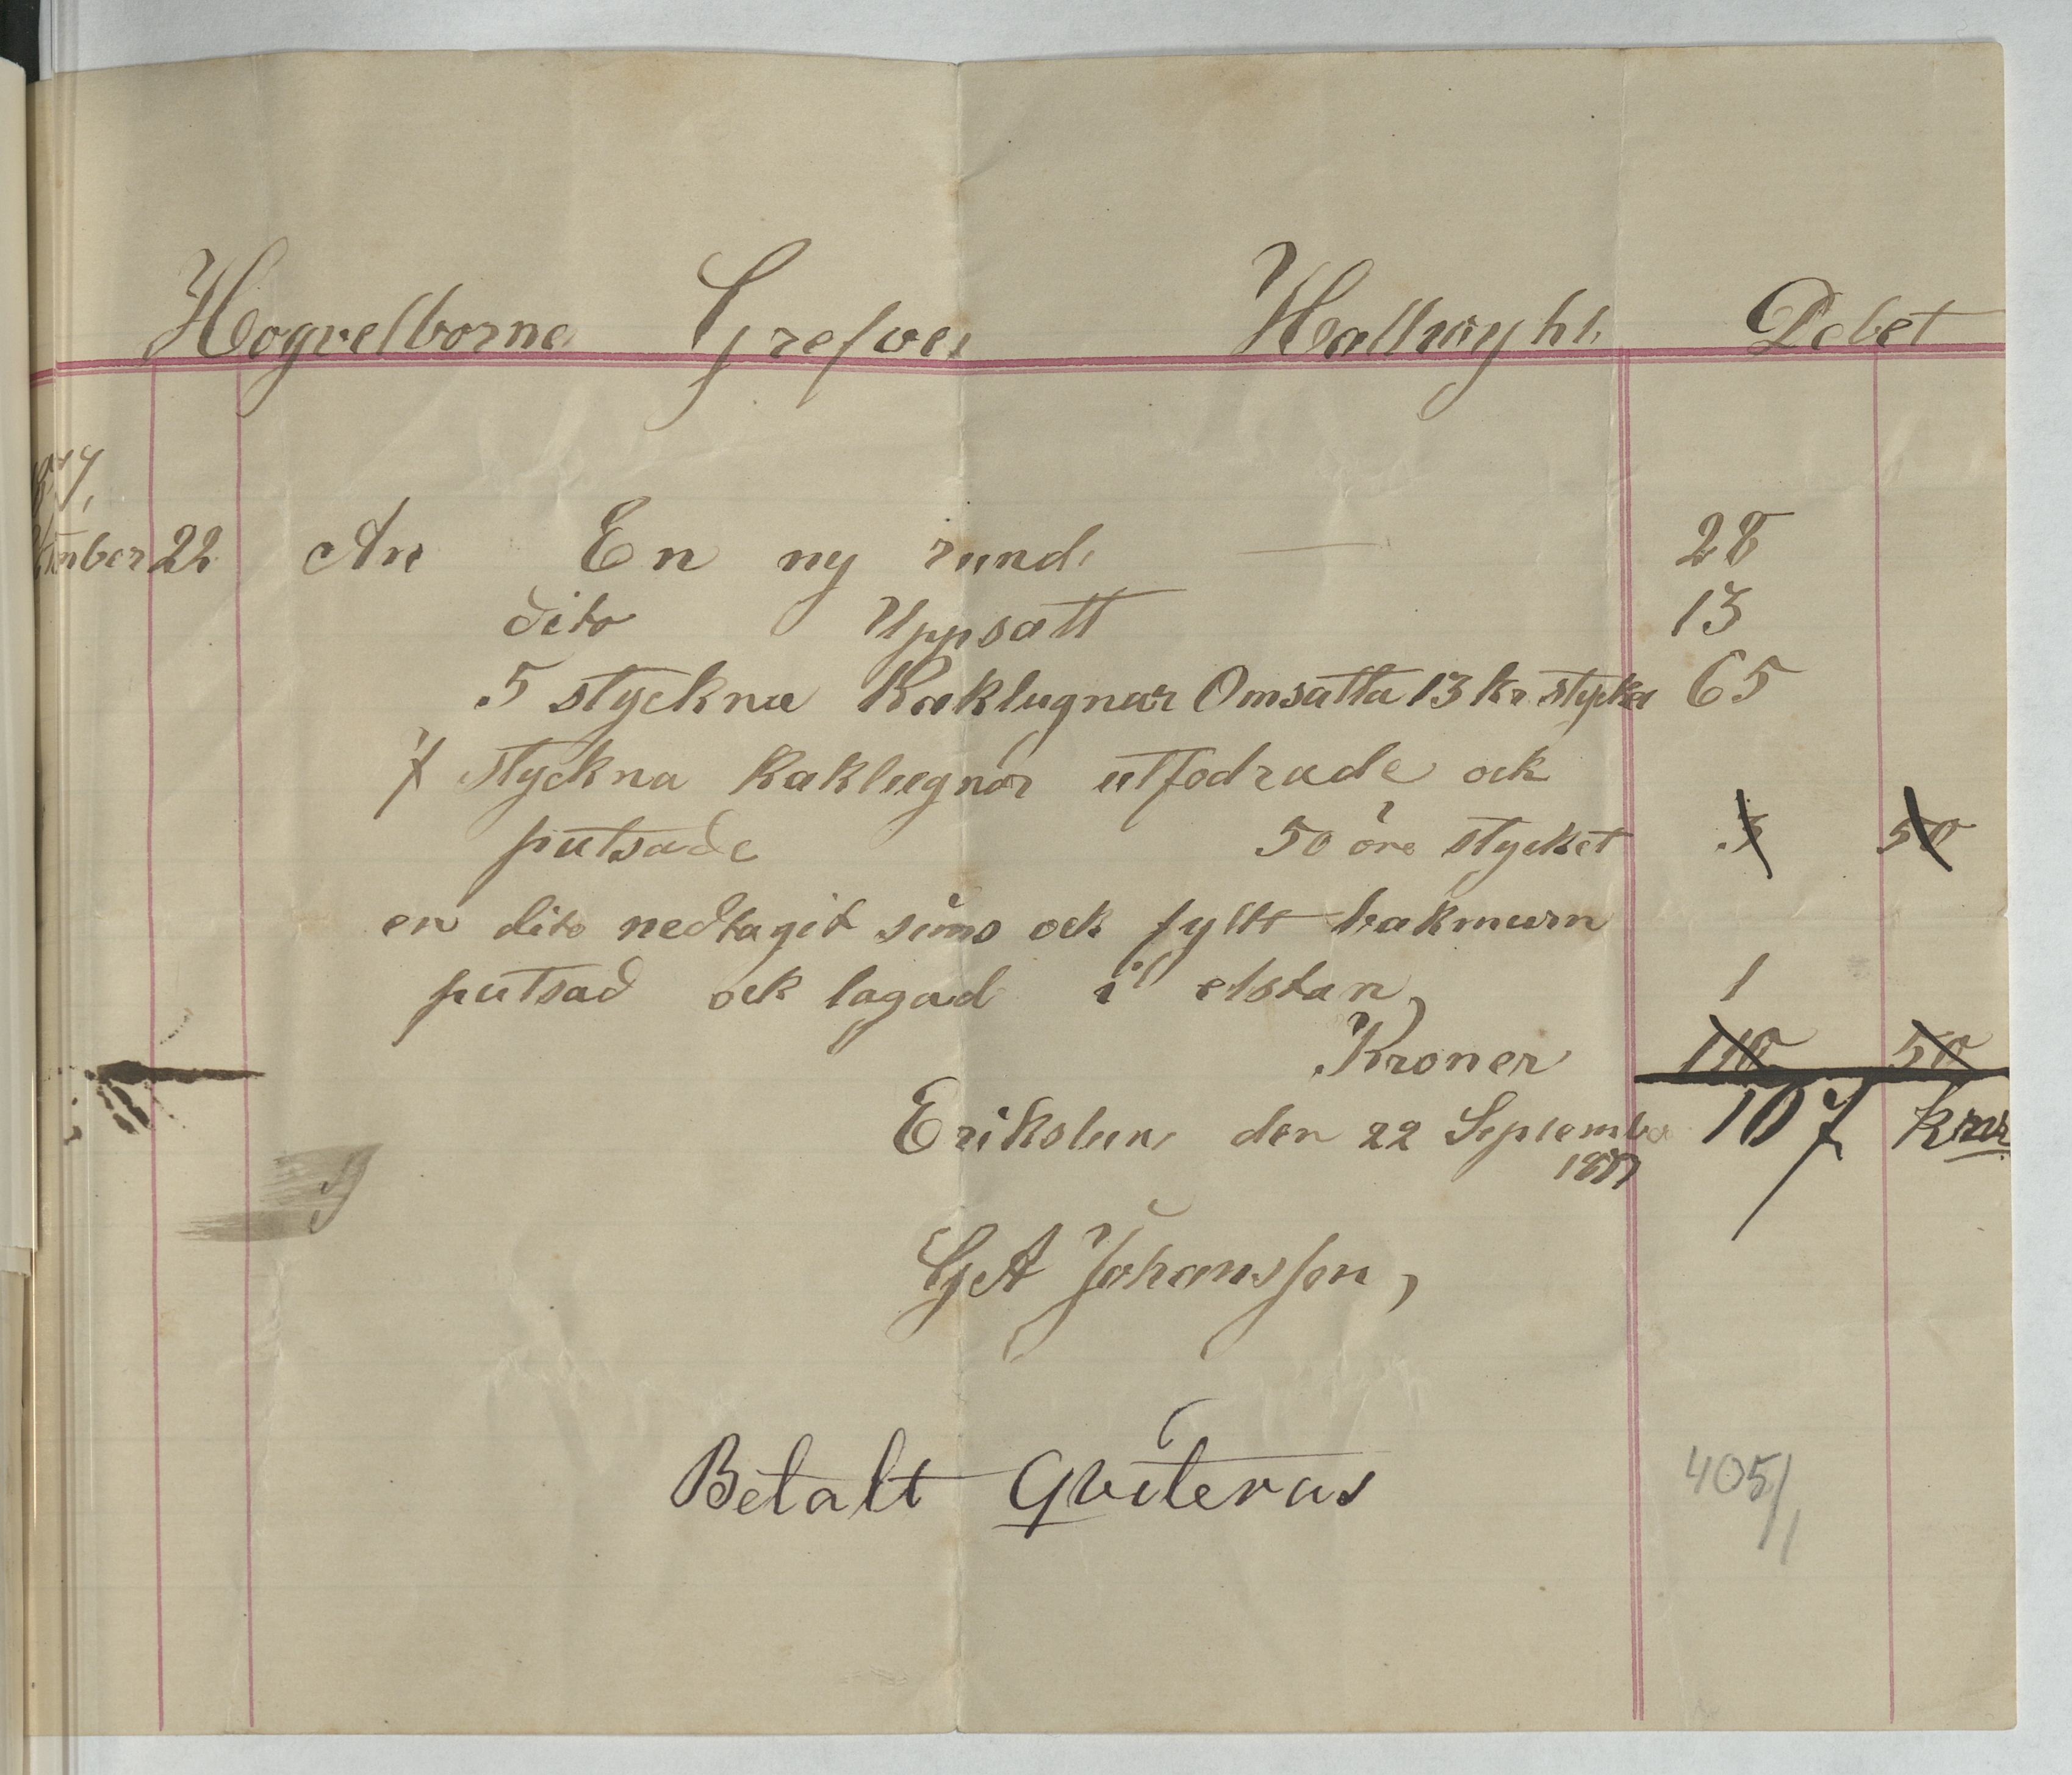 Hogvelborne Grefve Hallwyhl Debet
877
tember 22 An En ny rund 28
dito Uppsatt 13
5 styckna Kaklugnar Omsatta 13 kr stycket 65
7 styckna Kaklugnar utfodrade ock
putsade 50 öre stycket 3 50
en dito nedtagit sims ock fyllt bakmurn
putsad ock lagad i elstan, 1
Kroner 110 50
Erikslun den 22 September 107 kror
1877
G A Johansson,
Betalt Qviteras
405/1